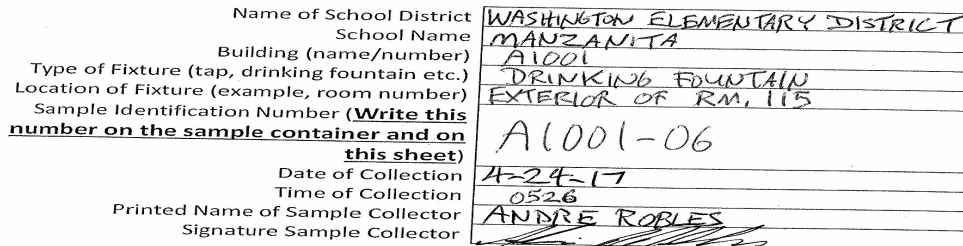 Name of School District WASHINGTON ELEMENTARY DISTRICT
School Name MANZANITA
Building (name/number) A1001
Type of Fixture (tap, drinking fountain etc.) DRINKING FOUNTAIN
Location of Fixture (example, room number) EXTERIOR OF RM. 115
Sample Identification Number (Write this
number on the sample container and on A1001-06
this sheet)
Date of Collection 4-24-17
Time of Collection 0526
Printed Name of Sample Collector ANDRE ROBLES
Signature Sample Collector